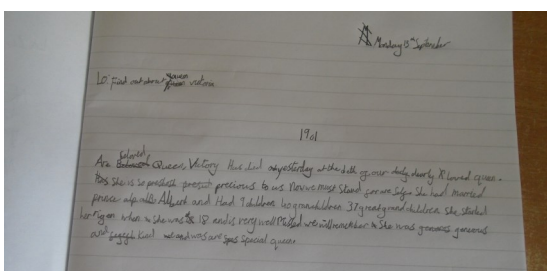 Monday 8th September
Lo: Find out about queen victoria
1901
Are beloved Queen Victory Has died yesterday at the death of our dearly loved queen.
She is so precious to us. Now we must stand for are selfs. She had married
prince Albert and Had 9 children 40 grandchildren 37 great grandchildren. She started
her rigon when she was 18 and is very well. We will remember she was generous
and kind and was are special queen.